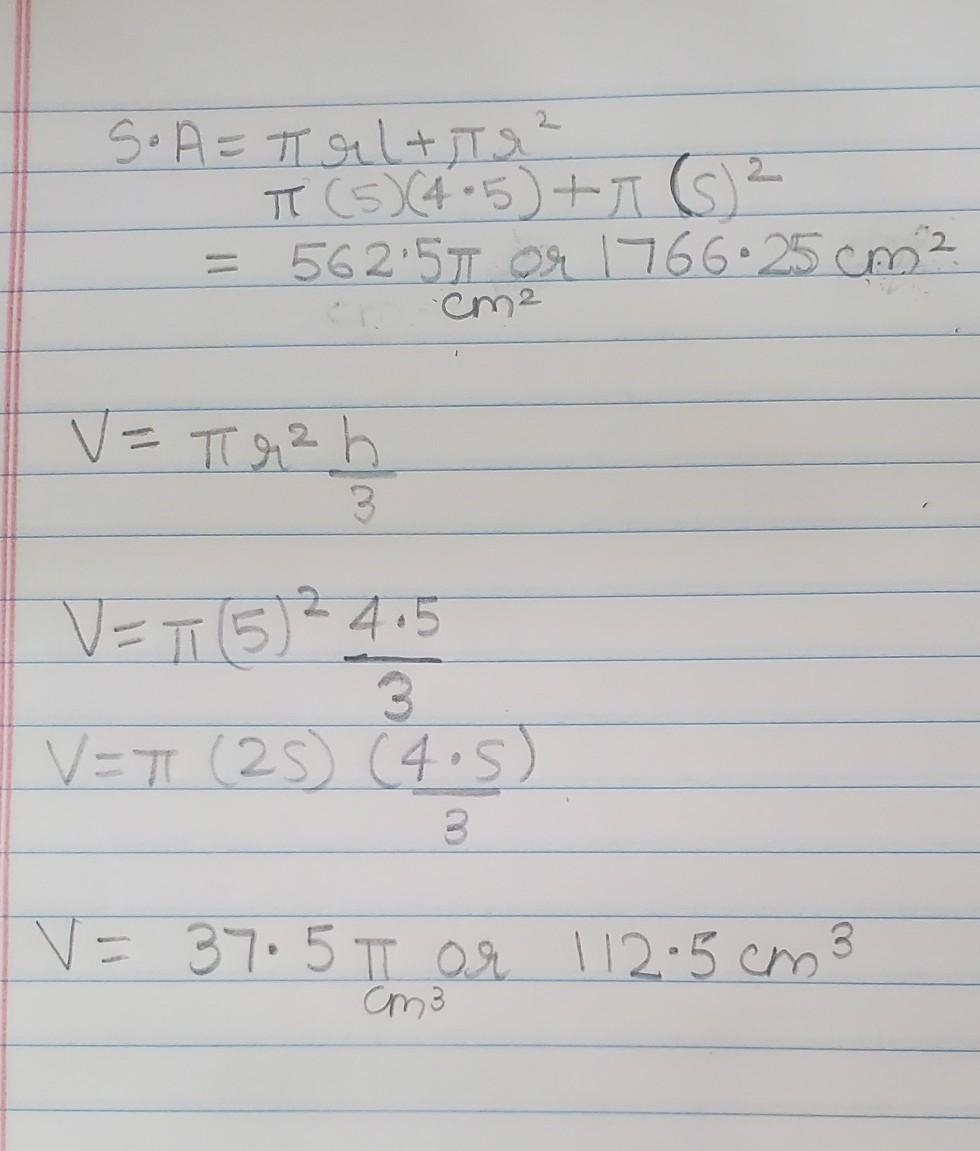 S.A = πrl + πr²
π(5)(4.5) + π(5)²
= 562.5π or 1766.25 cm²
cm²
V = πr² h/3
V = π(5)² 4.5/3
V = π (25) (4.5)/3
V = 37.5 π or 112.5 cm³
cm³